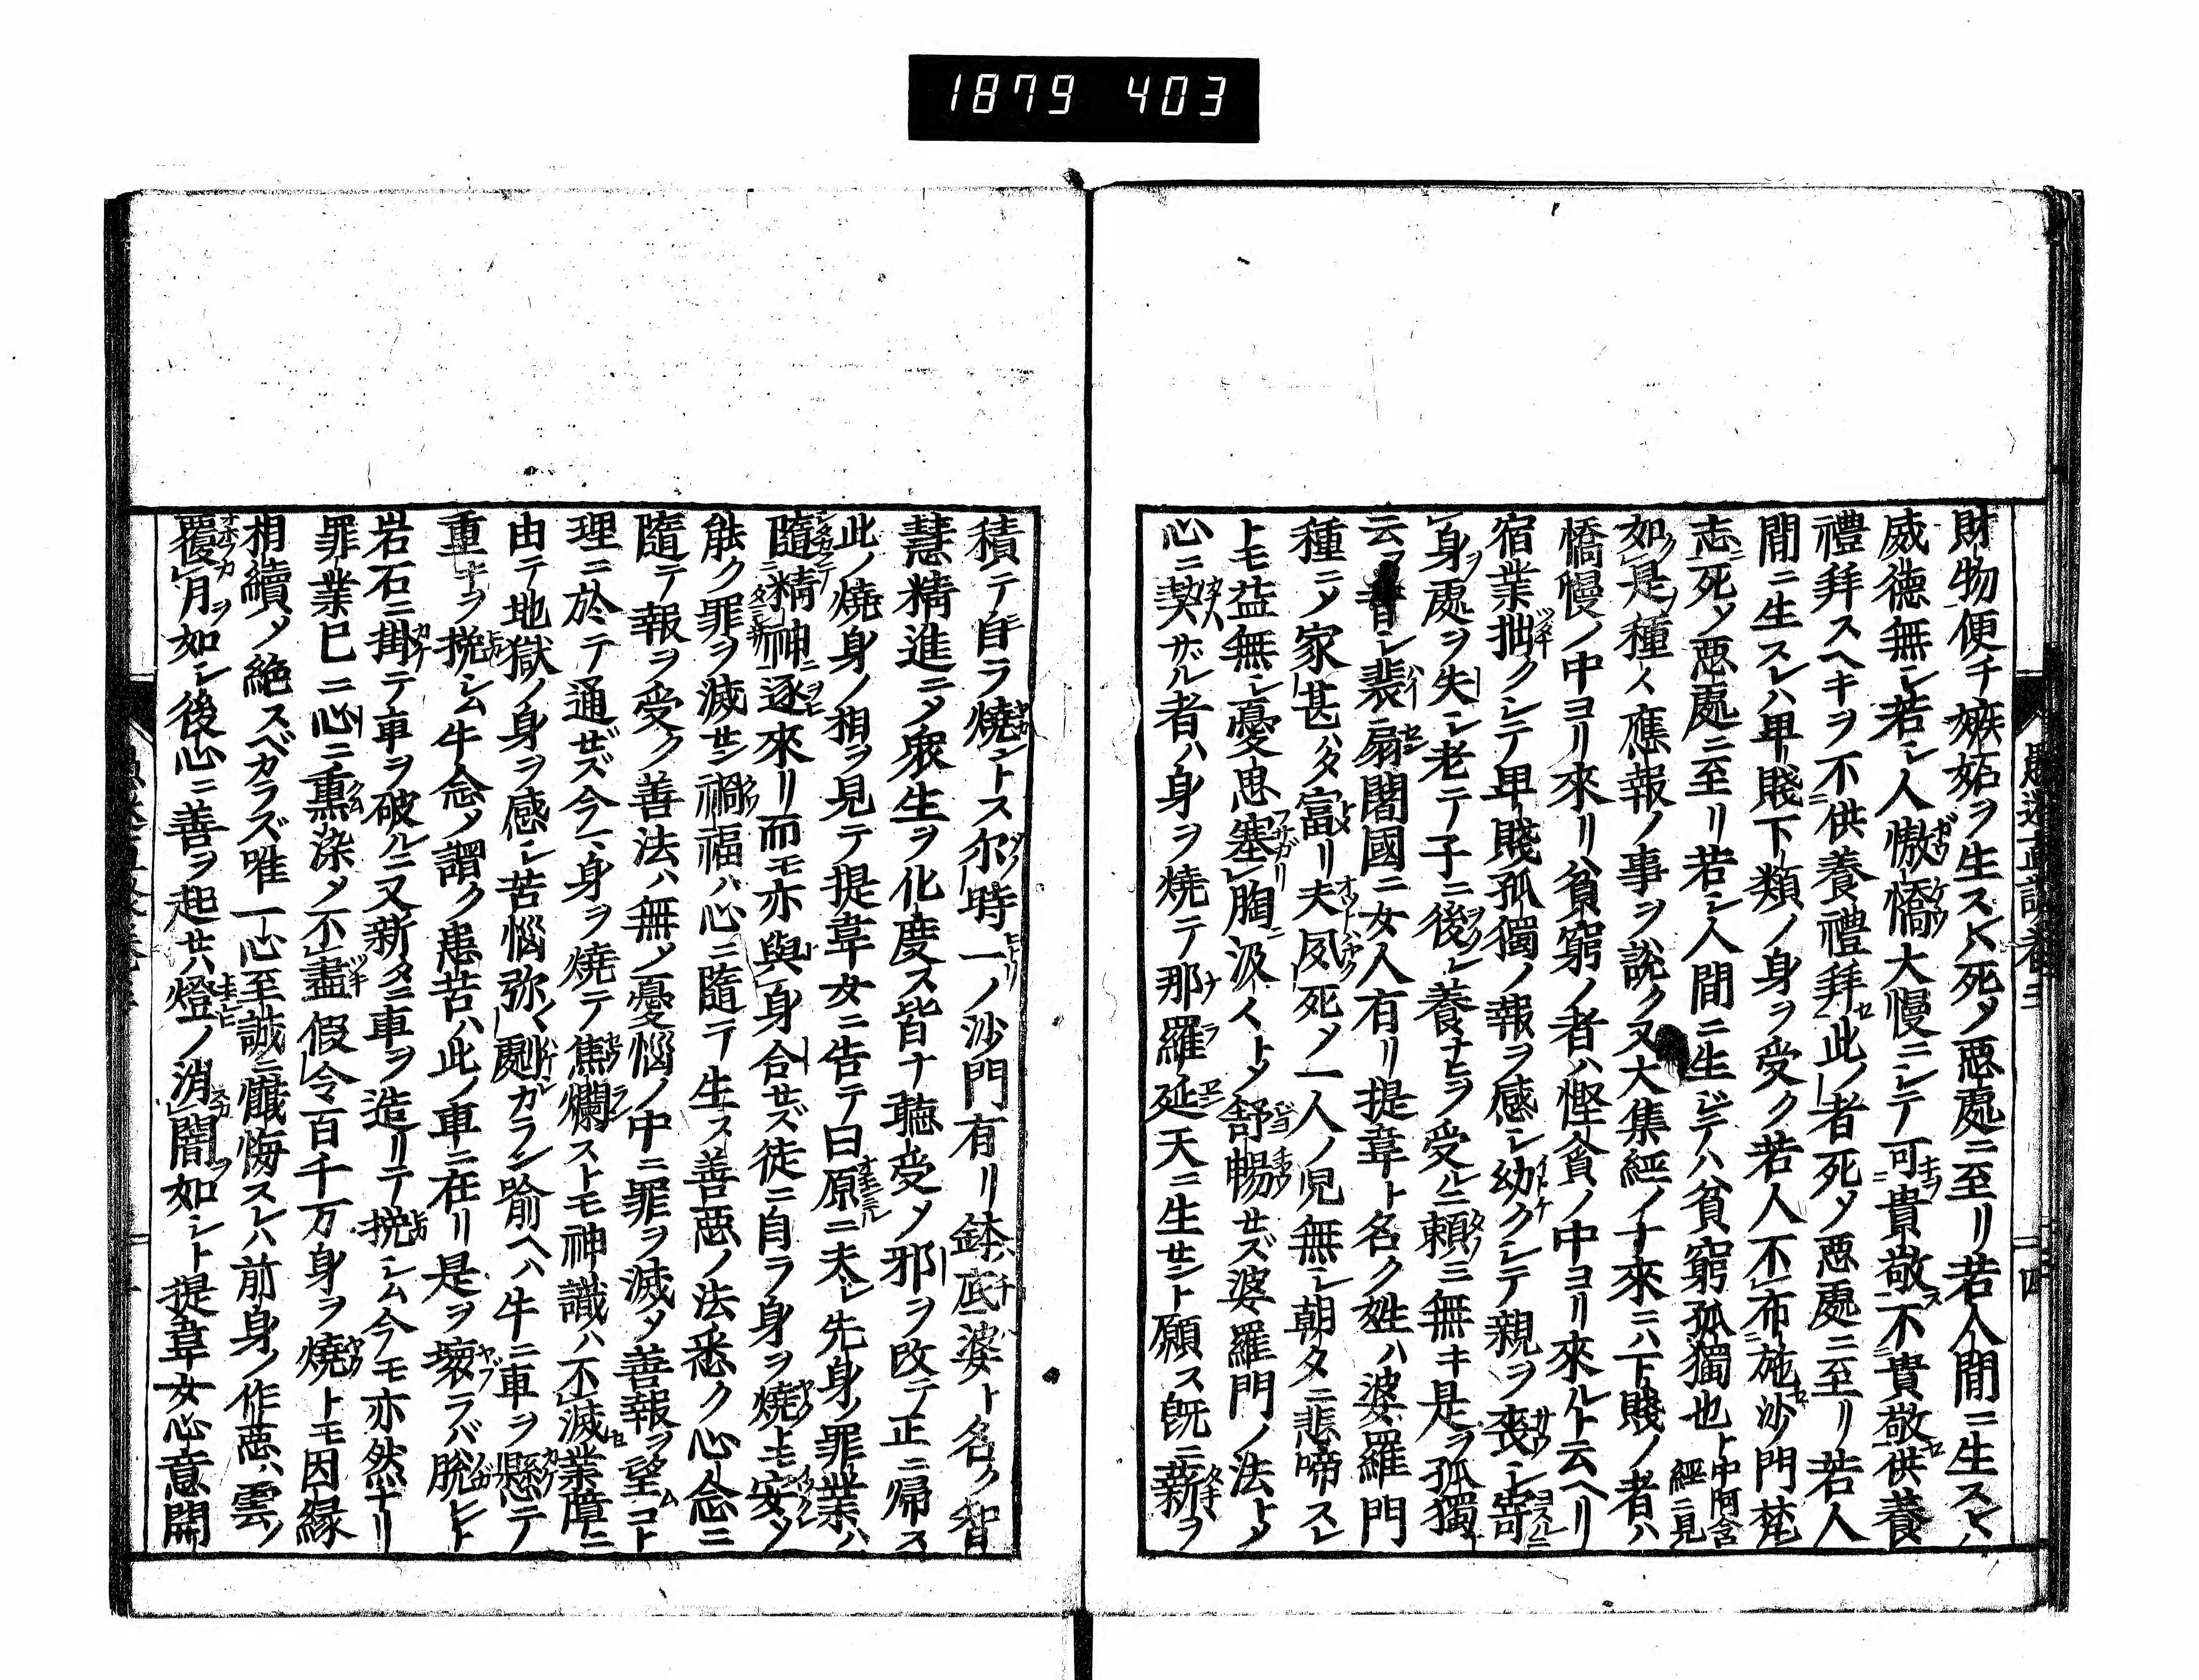 1879 403
財物便チ嫉妬ヲ生スレハ死メ悪處ニ至リ若人間ニ生スレハ
威徳無シ若シ人傲憍大慢ニシテ可貴敬不貴敬供養
禮拜スヘキヲ不供養禮拜此ノ者死メ悪處ニ至リ若人
間ニ生スレハ卑賤下類ノ身ヲ受ク若人不布施沙門梵
志死メ悪處ニ至リ若シ人間ニ生シテハ貧窮孤獨也ト中阿含經ニ見
如是種々應報ノ事ヲ説ク又大集經ノ十來ニハ下賤ノ者ハ
憍慢ノ中ヨリ來リ貧窮ノ者ハ慳貪ノ中ヨリ來ルト云ヘリ
宿業拙クシテ卑賤孤獨ノ報ヲ感シ幼クシテ親ヲ喪シ寄
身處ヲ失シ老テ子ニ後レ養ナヒヲ受ルニ頼ミ無キ是ヲ孤獨
云フ昔シ裴扇闍國ニ女人有リ提韋ト名ク姓ハ婆羅門
種ニメ家甚ハタ富リ夫夙死メ一人ノ児無シ朝タニ悲啼スレ
トモ益無シ憂思塞胸汲々トメ舒暢セズ婆羅門ノ法トメ
心ニ契サル者ハ身ヲ燒テ那羅延天ニ生セント願ス既ニ薪ヲ
積テ自ラ燒ントス尓時一ノ沙門有リ鉢底婆ト名ク智
慧精進ニメ衆生ヲ化度ス皆ナ聽受メ邪ヲ改テ正ニ帰ス
此ノ燒身ノ相ヲ見テ提韋女ニ告テ曰原ニ夫レ先身ノ罪業ハ
隨精神ニ逐來リ而モ亦與身合セズ徒ニ自ラ身ヲ燒トモ安ソ
能ク罪ヲ滅セン禍福ハ心ニ隨テ生ス善悪ノ法悉ク心念ニ
隨テ報ヲ受ク善法ハ無メ憂悩ノ中ニ罪ヲ滅メ善報ヲ望ムコト
理ニ於テ通ゼズ今一身ヲ燒テ焦爛ストモ神識ハ不滅業障ニ
由テ地獄ノ身ヲ感シ苦悩弥々劇カラン喩ヘハ牛ニ車ヲ懸テ
重ナヲ挽シム牛念メ謂ク患苦ハ此ノ車ニ在リ是ヲ壊ラバ脱ヒト
岩石ニ掛テ車ヲ破ルニ又新タニ車ヲ造リテ挽シム今モ亦然ナリ
罪業已ニ心ニ熏染メ不盡假令百千万身ヲ燒トモ因縁
相續メ絶スベカラズ唯一心至誠ニ懺悔スレハ前身ノ作悪ハ雲ノ
覆月如シ後心ニ善ヲ起セハ燈ノ消闇如シト提韋女心意開